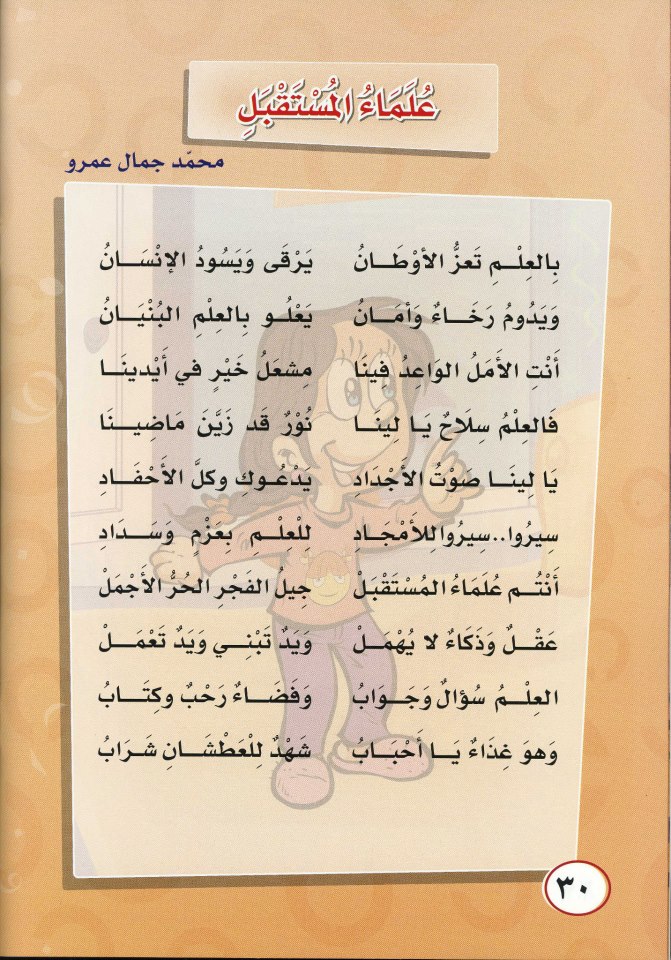 عُلَمَاءُ المُسْتَقْبَلِ
محمّد جمال عمرو
بِالعِلْـمِ تَعزُّ الأوْطَـانُ يَرْقَى وَيَسُودُ الإنْسَـانُ
وَيَدُومُ رَخَـاءٌ وَأمَـانُ يَعْلُـو بِالعِلْمِ البُنْيَـانُ
أَنْتِ الأَمَلُ الوَاعِدُ فِينَا مِشعَلُ خَيْرٍ في أَيْدينَـا
فَالعِلْمُ سِلَاحٌ يَـا لِينَـا نُوْرٌ قَد زَيَّنَ مَاضِيـنَا
يَا لِينَـا صَوْتُ الأجْدَادِ يَدْعُـوكِ وكلَّ الأَحْفَـادِ
سِيرُوا..سِيرُوا لِلأَمْجَـادِ لِلْعِلْـمِ بِعَزْمٍ وَسَـدَادِ
أَنْتُـم عُلَمَاءُ المُسْتَقْبَلْ جِيلُ الفَجْرِ الحُرُّ الأَجْمَلْ
عَقْـلٌ وَذَكَاءٌ لا يُهْمَـلْ وَيَدٌ تَبْنِـي وَيَدٌ تَعْمَـلْ
العِلْـمُ سُؤالٌ وَجَـوَابُ وَفَضَـاءٌ رَحْبٌ وكِتَـابُ
وَهوَ غِذَاءٌ يَـا أَحْبَـابُ شَهْدٌ لِلْعَطْشَـانِ شَرَابُ
٣٠